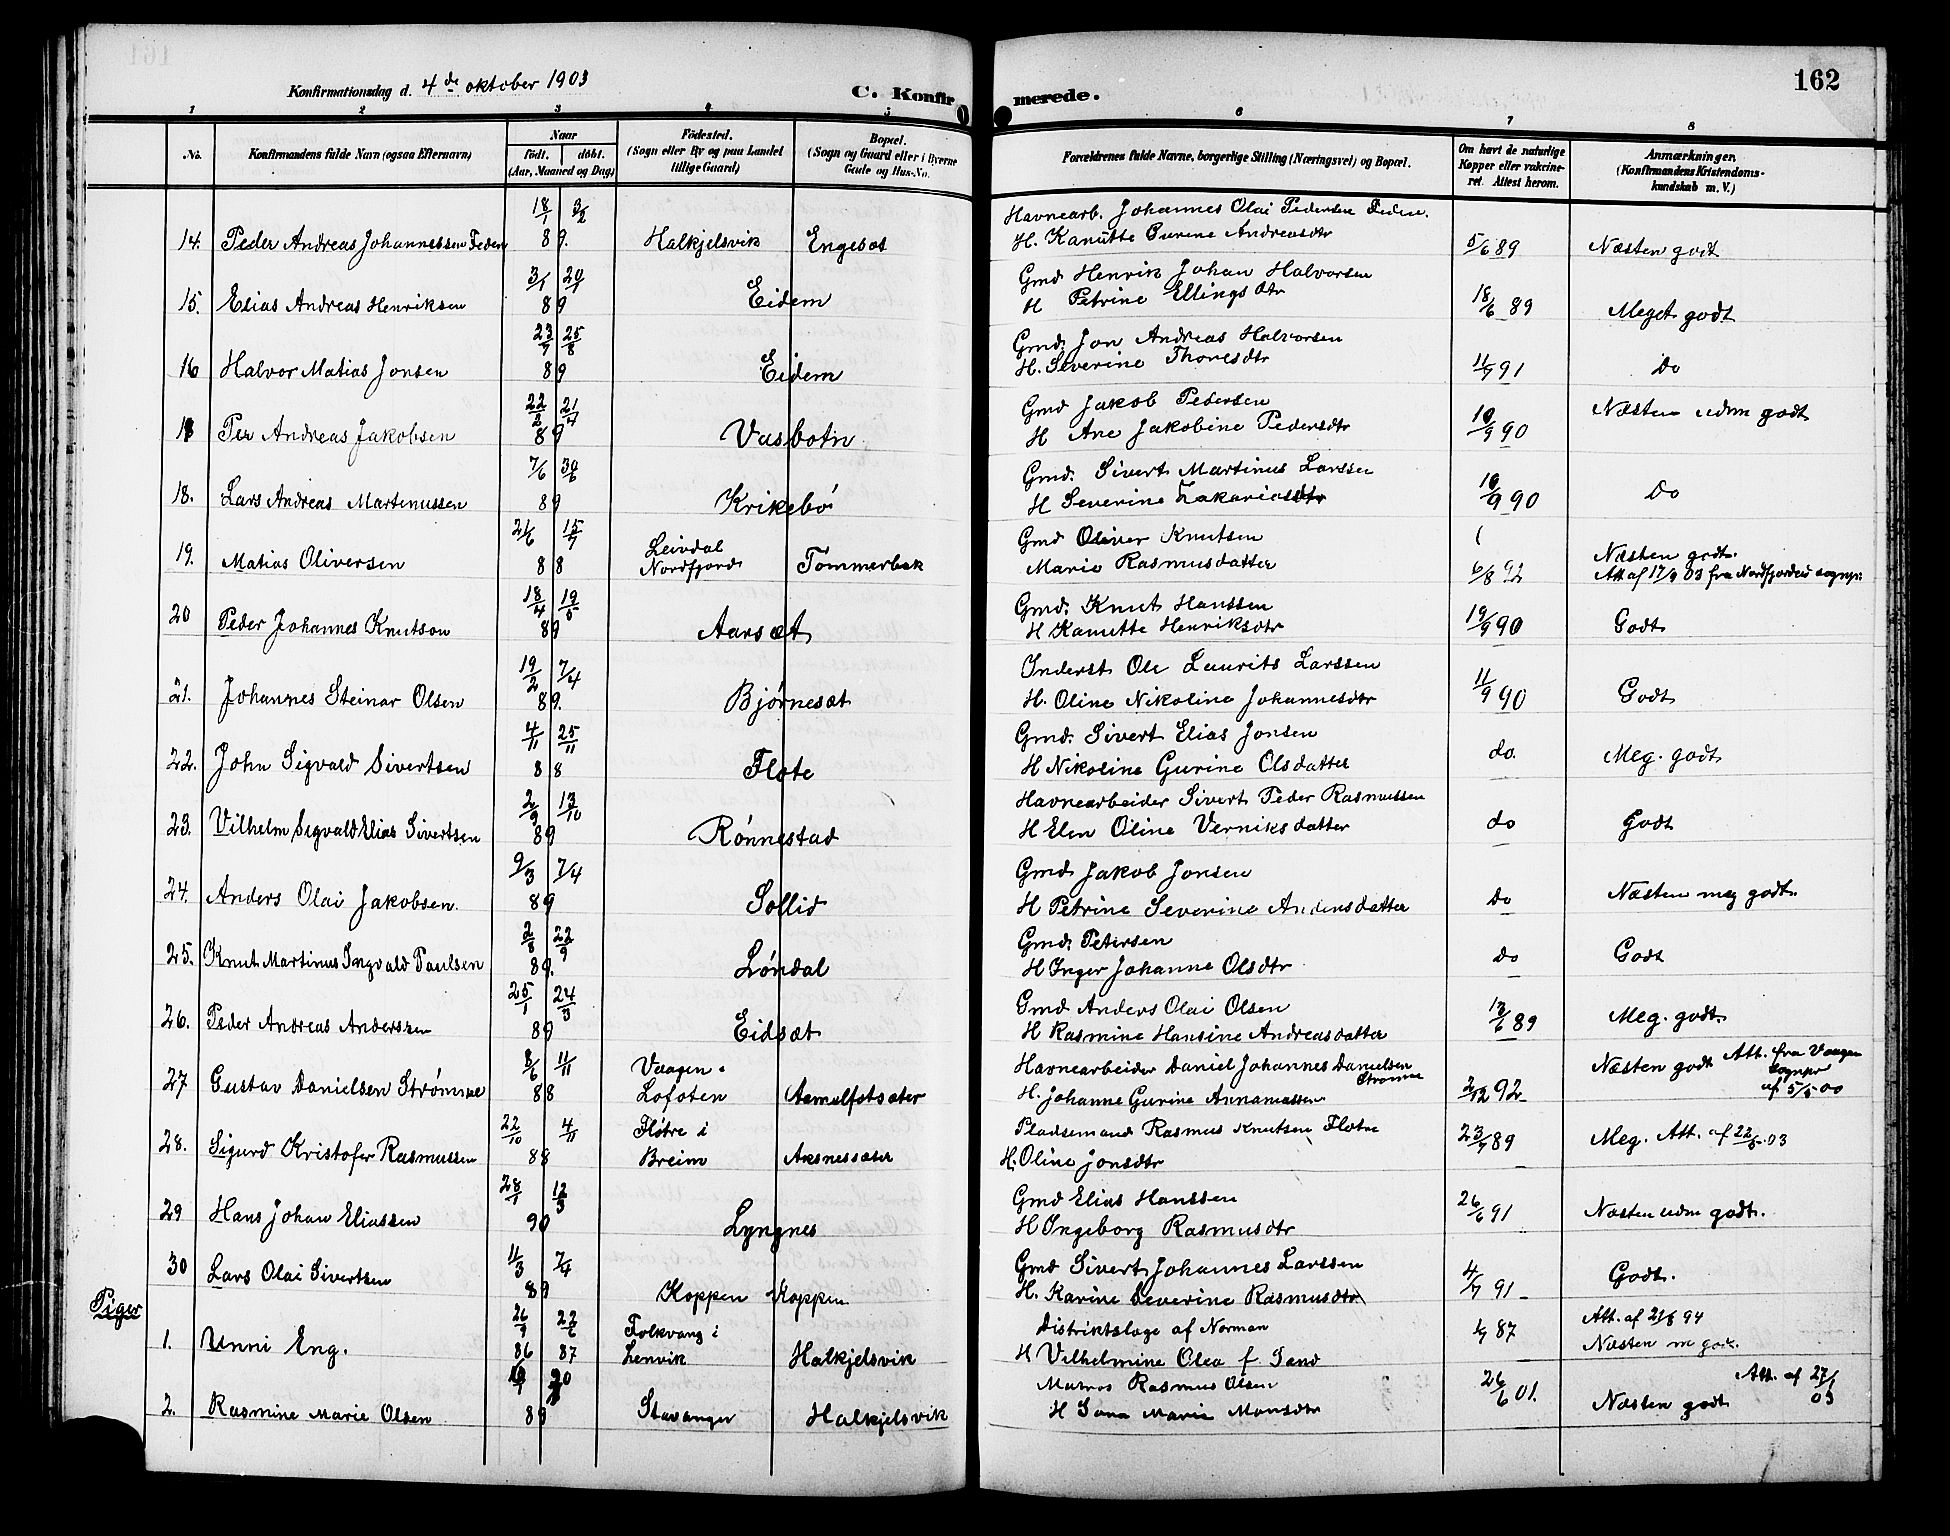 Konfirmationsdag d. 4de oktober 1903
C. Konfirmerede.
162
1 2 3 4 5 6 7 8
No.
Konfirmandens fulde Navn (ogsaa Efternavn)
Naar
födt. döbt.
(Aar, Maaned og Dag)
Födested.
(Sogn eller By og paa Landet
tillige Gaard)
Bopæl.
(Sogn og Gaard eller i Byerne
Gade og Hus-No.
Forældrenes fulde Navne, borgerlige Stilling (Næringsvei) og Bopæl.
Om havt de naturlige
Kopper eller vakcine-
ret. Attest herom.
Anmærkninger.
(Konfirmandens Kristendoms-
kundskab m. V.)
18/1 3/2 Havnearb. Johannes Olai Pedersen
14. Peder Andreas Johannessen 89. Halkjelsvik Engeset H. Kanutte Gurine Andreasdtr 5/6 89 Næsten godt
3/1 20/1 Gmd Henrik Johan Halvorsen
15. Elias Andreas Henriksen 89 Eidem H Petrine Ellingsdtr 18/6 89 Meget godt
23/7 25/8 Gmd. Jon Andreas Halvorsen
16 Halvor Matias Jonsen 89 Eidem H. Severine Thoresdtr 11/9 91 Do
22/2 21/4 Gmd Jakob Pedersen Næsten udm godt
Per Andreas Jakobsen 89 Vasbotn H Ane Jakobine Pedersdtr 10/9 90
7/6 30/6 Gmd. Sivert Martinus Larssen
18. Lars Andreas Martinussen 89 Krikebö H Severine Zakariasdtr 10/9 90 Do
21/6 15/7 Leivdal Gmd Oliver Knutsen Næsten godt.
19. Matias Oliversen 88 Nordfjord Tommerbak Marie Rasmusdatter 6/8 92 Att af 17/9 03 fra Nordfjordeid sognpr.
18/4 19/5 Gmd. Knut Hanssen
20 Peder Johannes Knutson 89 Aarsæt H Kanutte Henriksdtr 10/9 90 Godt
19/2 7/4 Inderst Ole Laurits Larssen
21. Johannes Steinar Olsen 89. Bjørnesæt H. Oline Nikoline Johannesdtr 11/9 90 Godt
4/11 25/11 Gmd. Sivert Elias Jonsen
22. John Sigvald Sivertsen 88 Flote H Nikoline Gurine Olsdatter do. Meg. godt
2/9 13/10 Havnearbeider Sivert Peder Rasmussen
23. Vilhelm Sigvald Elias Sivertsen 89 Rönnestad H Elen Oline Verniksdatter do Godt
9/3 7/4 Gmd Jakob Jonsen
24. Anders Olai Jakobsen. 89 Sollid H Petrine Severine Andersdatter Do Næsten meg godt.
2/8 22/9 Gmd. Petersen
25. Knut Martinus Ingvald Paulsen 89. Löndal H Inger Johanne Olsdtr Do Godt
25/1 24/3 Gmd Anders Olai Olsen
26. Peder Andreas Anderssen 89 Eidsæt H Rasmine Hansine Andreasdatter 13/6 89 Meg. godt.
8/6 11/11 Vaagen i Havnearbeider Daniel Johannes Danielsen Strømme Næsten godt Att. fra Vaagen sognpr
27 Gustav Danielsen Strømme 88 Lofoten Aamelfotsæter H. Johanne Gurine 2/12 92 af 5/5 00
22/10 4/11 Flötre i Pladsemand Rasmus Knutsen Flotre
28. Sigurd Kristofer Rasmussen 88 Breim Aksnessæter H. Oline Jonsdtr 23/7 89 Meg. Att. af 22/5 03
28/1 12/3 Gmd Elias Hanssen
29 Hans Johan Eliassen 90 Lyngnes H Ingeborg Rasmusdtr 26/6 91 Næsten udm godt.
11/3 7/4 Gmd Sivert Johannes Larssen
30 Lars Olai Sivertsen 89 Koppen Koppen H. Karine Severine Rasmusdtr 4/7 91 Godt.
Piger
26/9 22/6 Folkvang i Distriktslæge af Norman Att. af 21/8 94
1. Unni Eng. 86 87 Lenvik Halkjelsvik H Vilhelmine Olea f. Sand 1/9 87 Næsten m godt.
Matros Rasmus Olsen Att. af 27/1 03
2. Rasmine Marie Olsen 89 Stavanger Halkjelsvik H Marie Monsdtr 26/6 01. Næsten godt